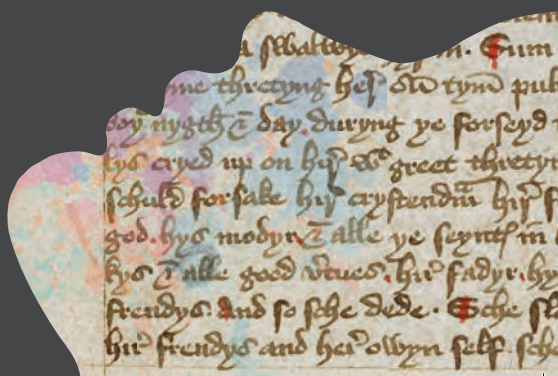 a swalwyd hym. Sum
me thretyng her ou tym pul
oy nygth & day duryng ye forseyd
lys cryed up on hir wt greet threty
schuld forsake hir crystendam hir f
god. hys modyr. & alle ye seyntys in
kys & alle good vertues. hir fadyr. hy
frendys. And so sche dede. Sche sl
hir frendys and her owyn self sche